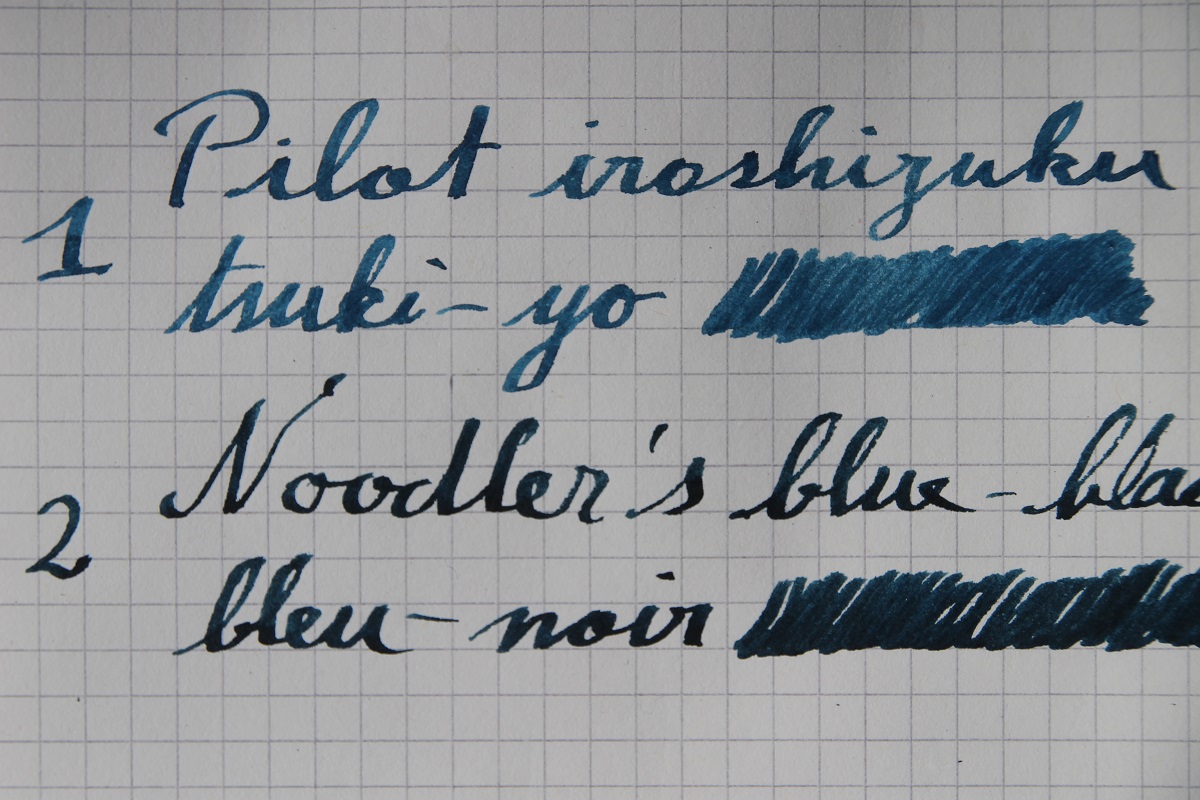 1 Pilot iroshizuku
tsuki-yo
2 Noodler's blue-blac
bleu-noir